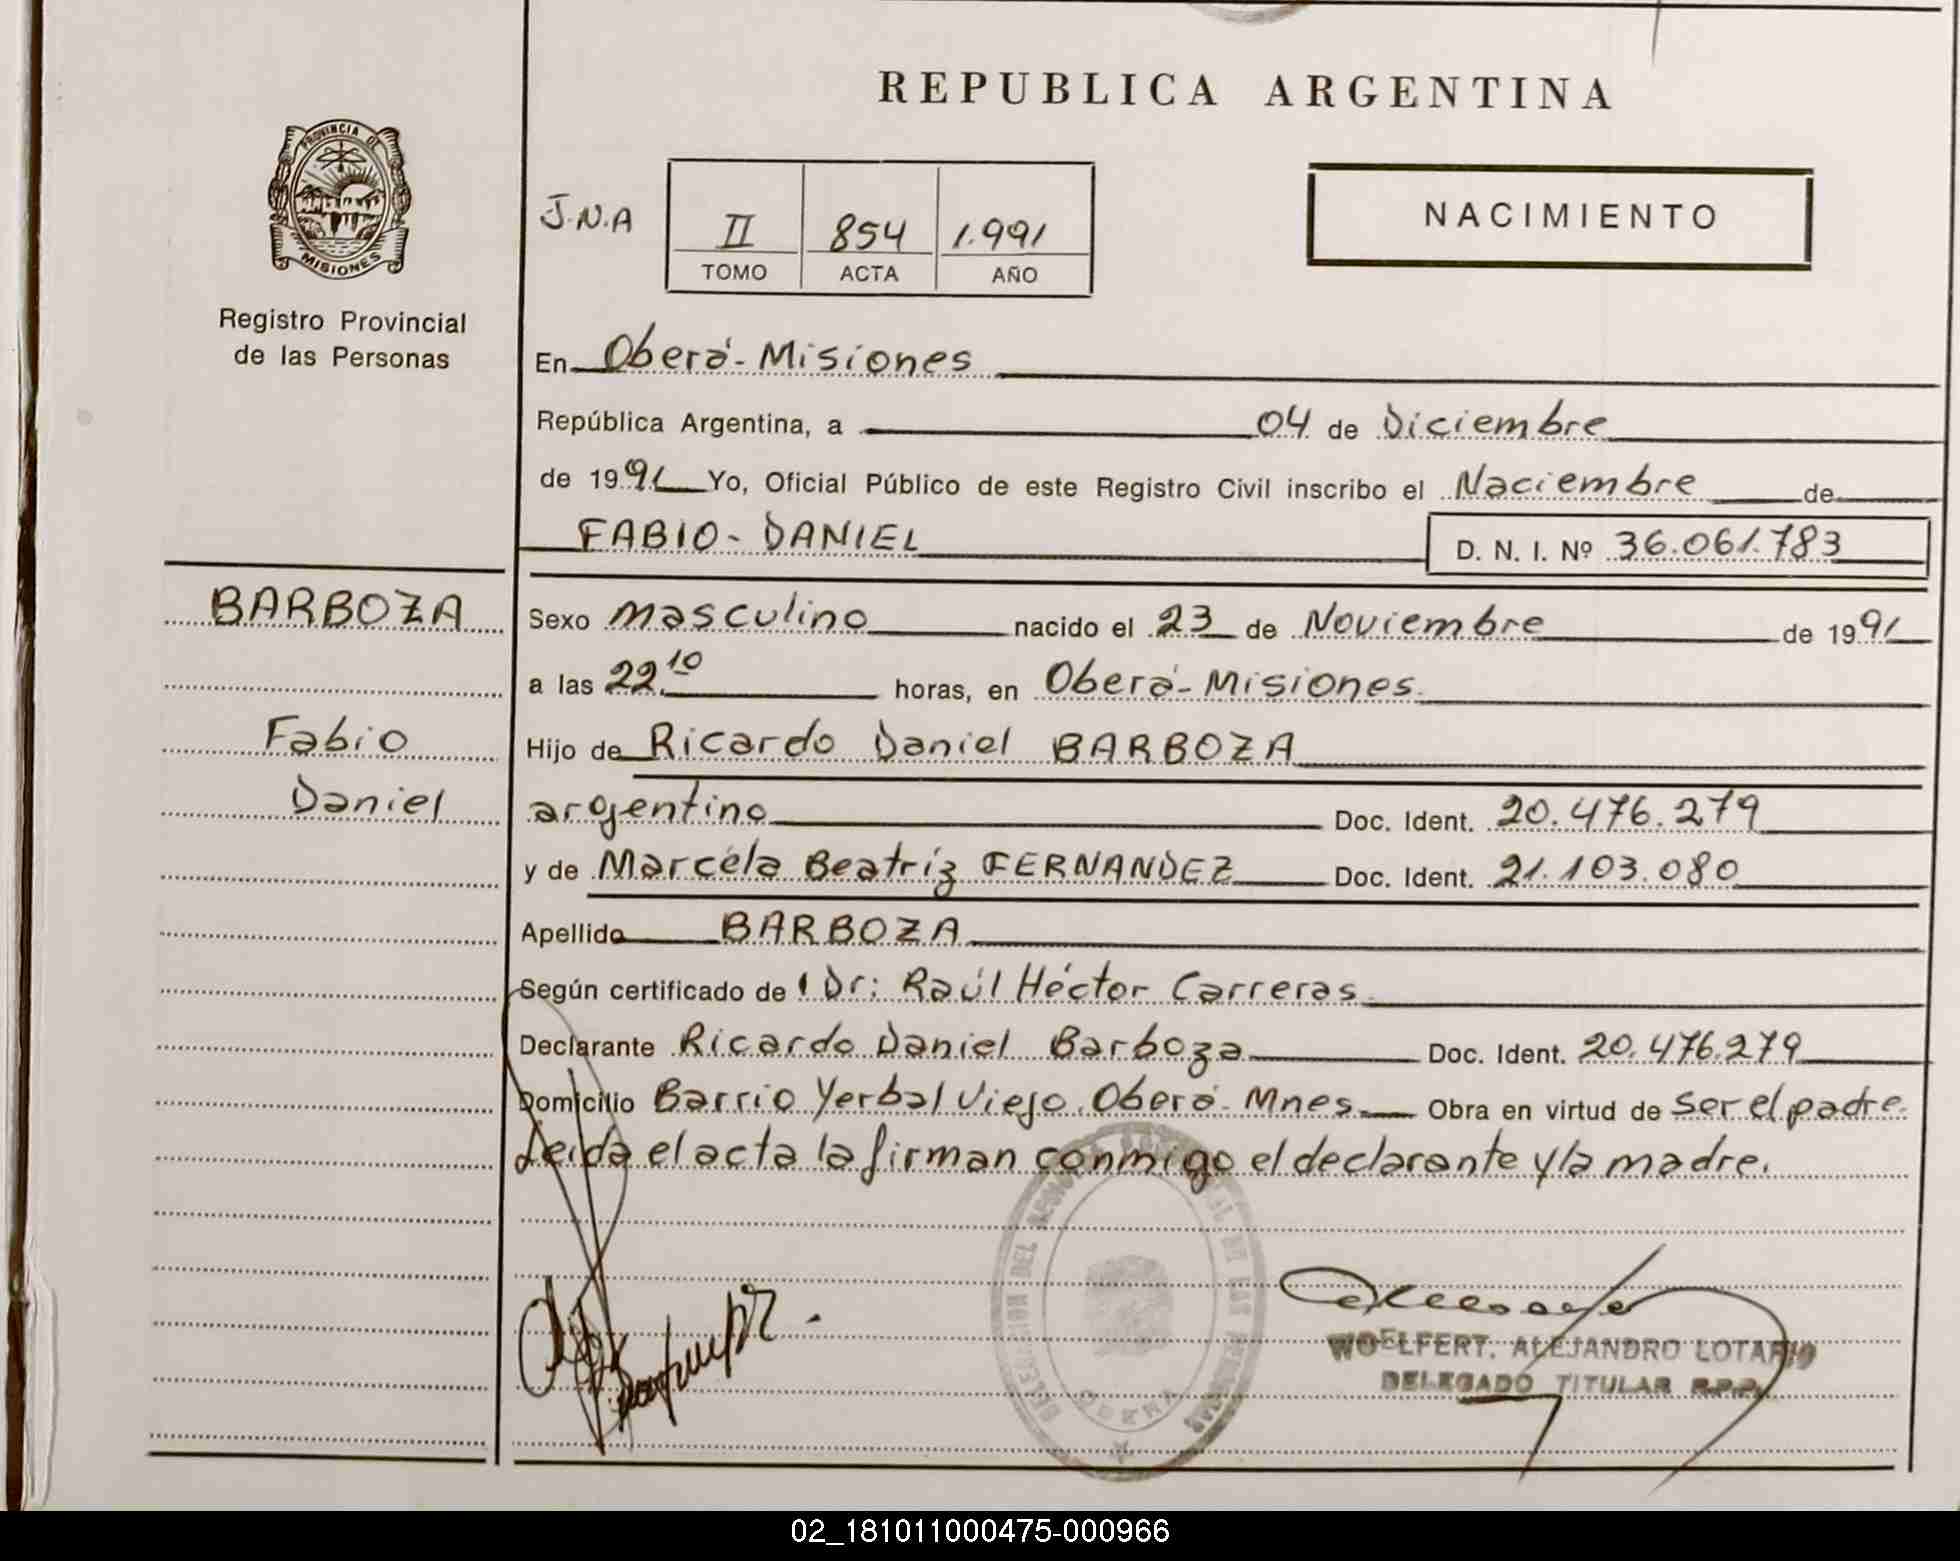 REPUBLICA ARGENTINA
PROVINCIA DE
MISIONES
Registro Provincial
de las Personas
J.N.A
II 854 1.991
TOMO ACTA AÑO
NACIMIENTO
En Oberá - Misiones
República Argentina, a 04 de Diciembre
de 1991 Yo, Oficial Público de este Registro Civil inscribo el Naciembre de
FABIO - DANIEL D. N. I. Nº 36.061.783
BARBOZA
Fabio
Daniel
Sexo masculino nacido el 23 de Noviembre de 1991
a las 22.10 horas, en Oberá - Misiones.
Hijo de Ricardo Daniel BARBOZA
argentino Doc. Ident. 20.476.279
y de Marcela Beatríz FERNANDEZ Doc. Ident. 21.103.080
Apellido BARBOZA
Según certificado de Dr: Raúl Héctor Carreras
Declarante Ricardo Daniel Barboza Doc. Ident. 20.476.279
Domicilio Barrio Yerbal Viejo. Oberá - Mnes. Obra en virtud de ser el padre.
Leída el acta la firman conmigo el declarante y la madre.
WOELFERT. ALEJANDRO LOTARIO
DELEGADO TITULAR R.P.P.
02_181011000475-000966